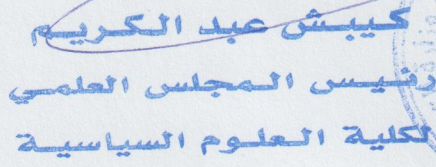 كيبش عبد الكريم
رئيس المجلس العلمي
لكلية العلوم السياسية